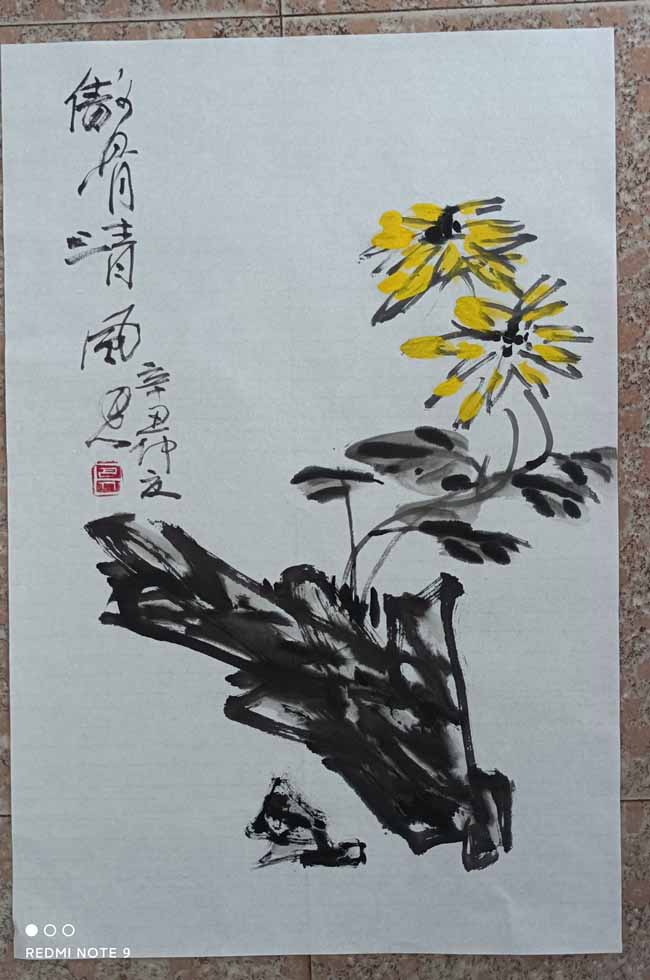 傲骨清风
辛丑仲文
REDMI NOTE 9